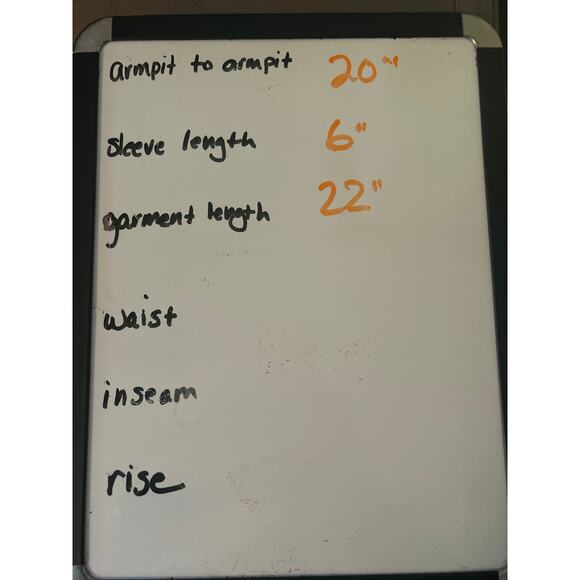 armpit to armpit 20"
sleeve length 6"
garment length 22"
waist
inseam
rise